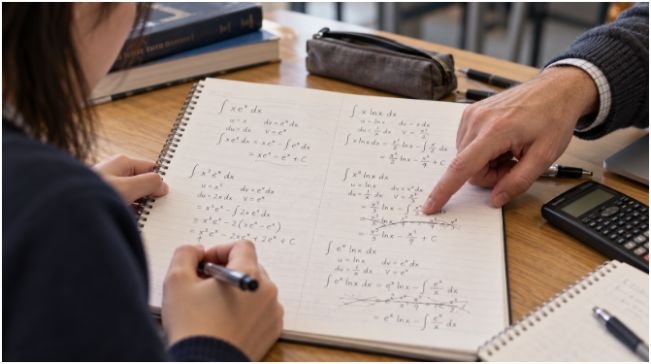 ∫ xeˣ dx
u = x dv = eˣ dx
du = dx v = eˣ
∫ xeˣ dx = xeˣ - ∫ eˣ dx
= xeˣ - eˣ + C
∫ x²eˣ dx
u = x² dv = eˣ dx
du = 2x dx v = eˣ
= x²eˣ - ∫ 2xeˣ dx
= x²eˣ - 2(xeˣ - eˣ)
= x²eˣ - 2xeˣ + 2eˣ + C
∫ x ln x dx
u = ln x dv = x dx
du = 1/x dx v = x²/2
∫ x ln x dx = x²/2 ln x - ∫ x/2 dx
= x²/2 ln x - x²/4 + C
ln x dx
u = ln x
du = 1/x dx
ln x - ∫
ln x - + C
∫ eˣ ln x dx
u = ln x dv = eˣ dx
du = 1/x dx v = eˣ
∫ eˣ ln x dx = eˣ ln x - ∫ eˣ/x dx
= eˣ ln x - ∫ eˣ/x dx